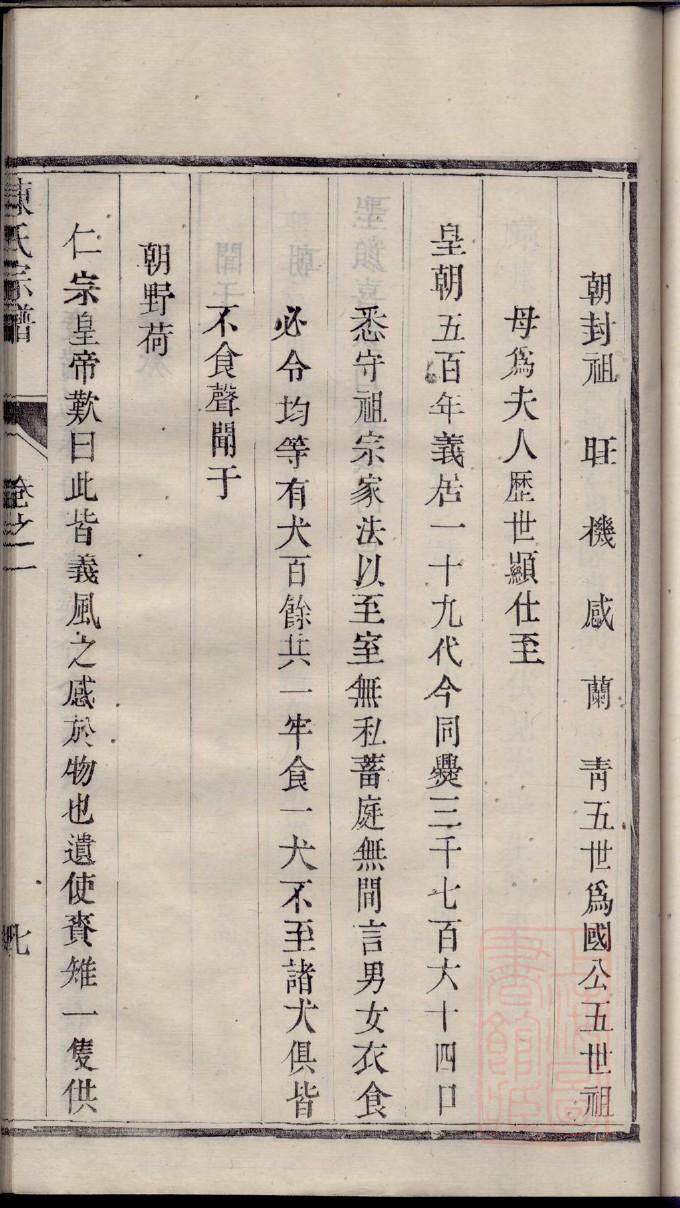 朝封祖旺機感蘭青五世爲國公五世祖
母爲夫人歷世顯仕至
皇朝五百年義居一十九代今同爨三千七百六十四口
悉守祖宗家法以至室無私蓄庭無間言男女衣食
必令均等有犬百餘共一牢食一犬不至諸犬俱皆
不食聲聞于
朝野荷
仁宗皇帝歎曰此皆義風之感於物也遺使賫雉一隻供
陳氏宗譜 卷之二 七